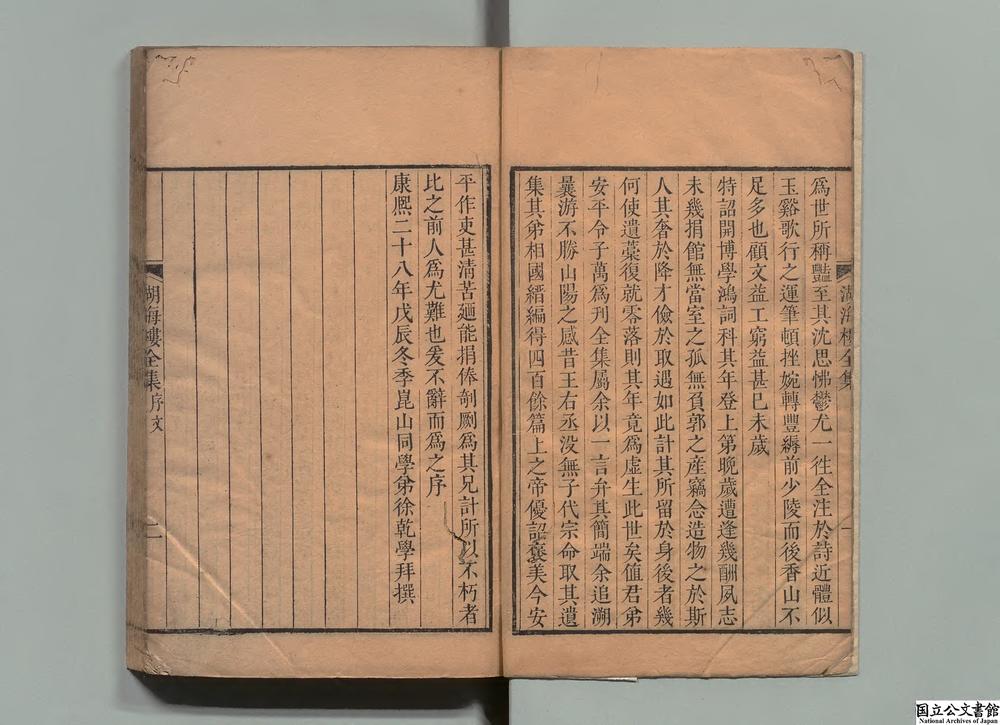 爲世所稱豔至其沈思怫鬱尤一徃全注於詩近體似
玉谿歌行之運筆頓挫婉轉豐縟前少陵而後香山不
足多也顧文益工窮益甚已未歲
特詔開博學鴻詞科其年登上第晚歲遭逢幾酬夙志
未幾捐館無當室之孤無負郭之産竊念造物之於斯
人其奢於降才儉於取遇如此計其所留於身後者幾
何使遺藁復就零落則其年竟爲虛生此世矣値君弟
安平令子萬爲刋全集屬余以一言弁其簡端余追溯
曩游不勝山陽之感昔王右丞没無子代宗命取其遺
集其弟相國縉編得四百餘篇上之帝優詔襃美今安
湖海樓全集
一
平作吏甚清苦廼能捐俸剞劂爲其兄計所以不朽者
比之前人爲尤難也爰不辭而爲之序
康熈二十八年戊辰冬季崑山同學弟徐乾學拜撰
湖海樓全集 序文
二
国立公文書館
National Archives of Japan